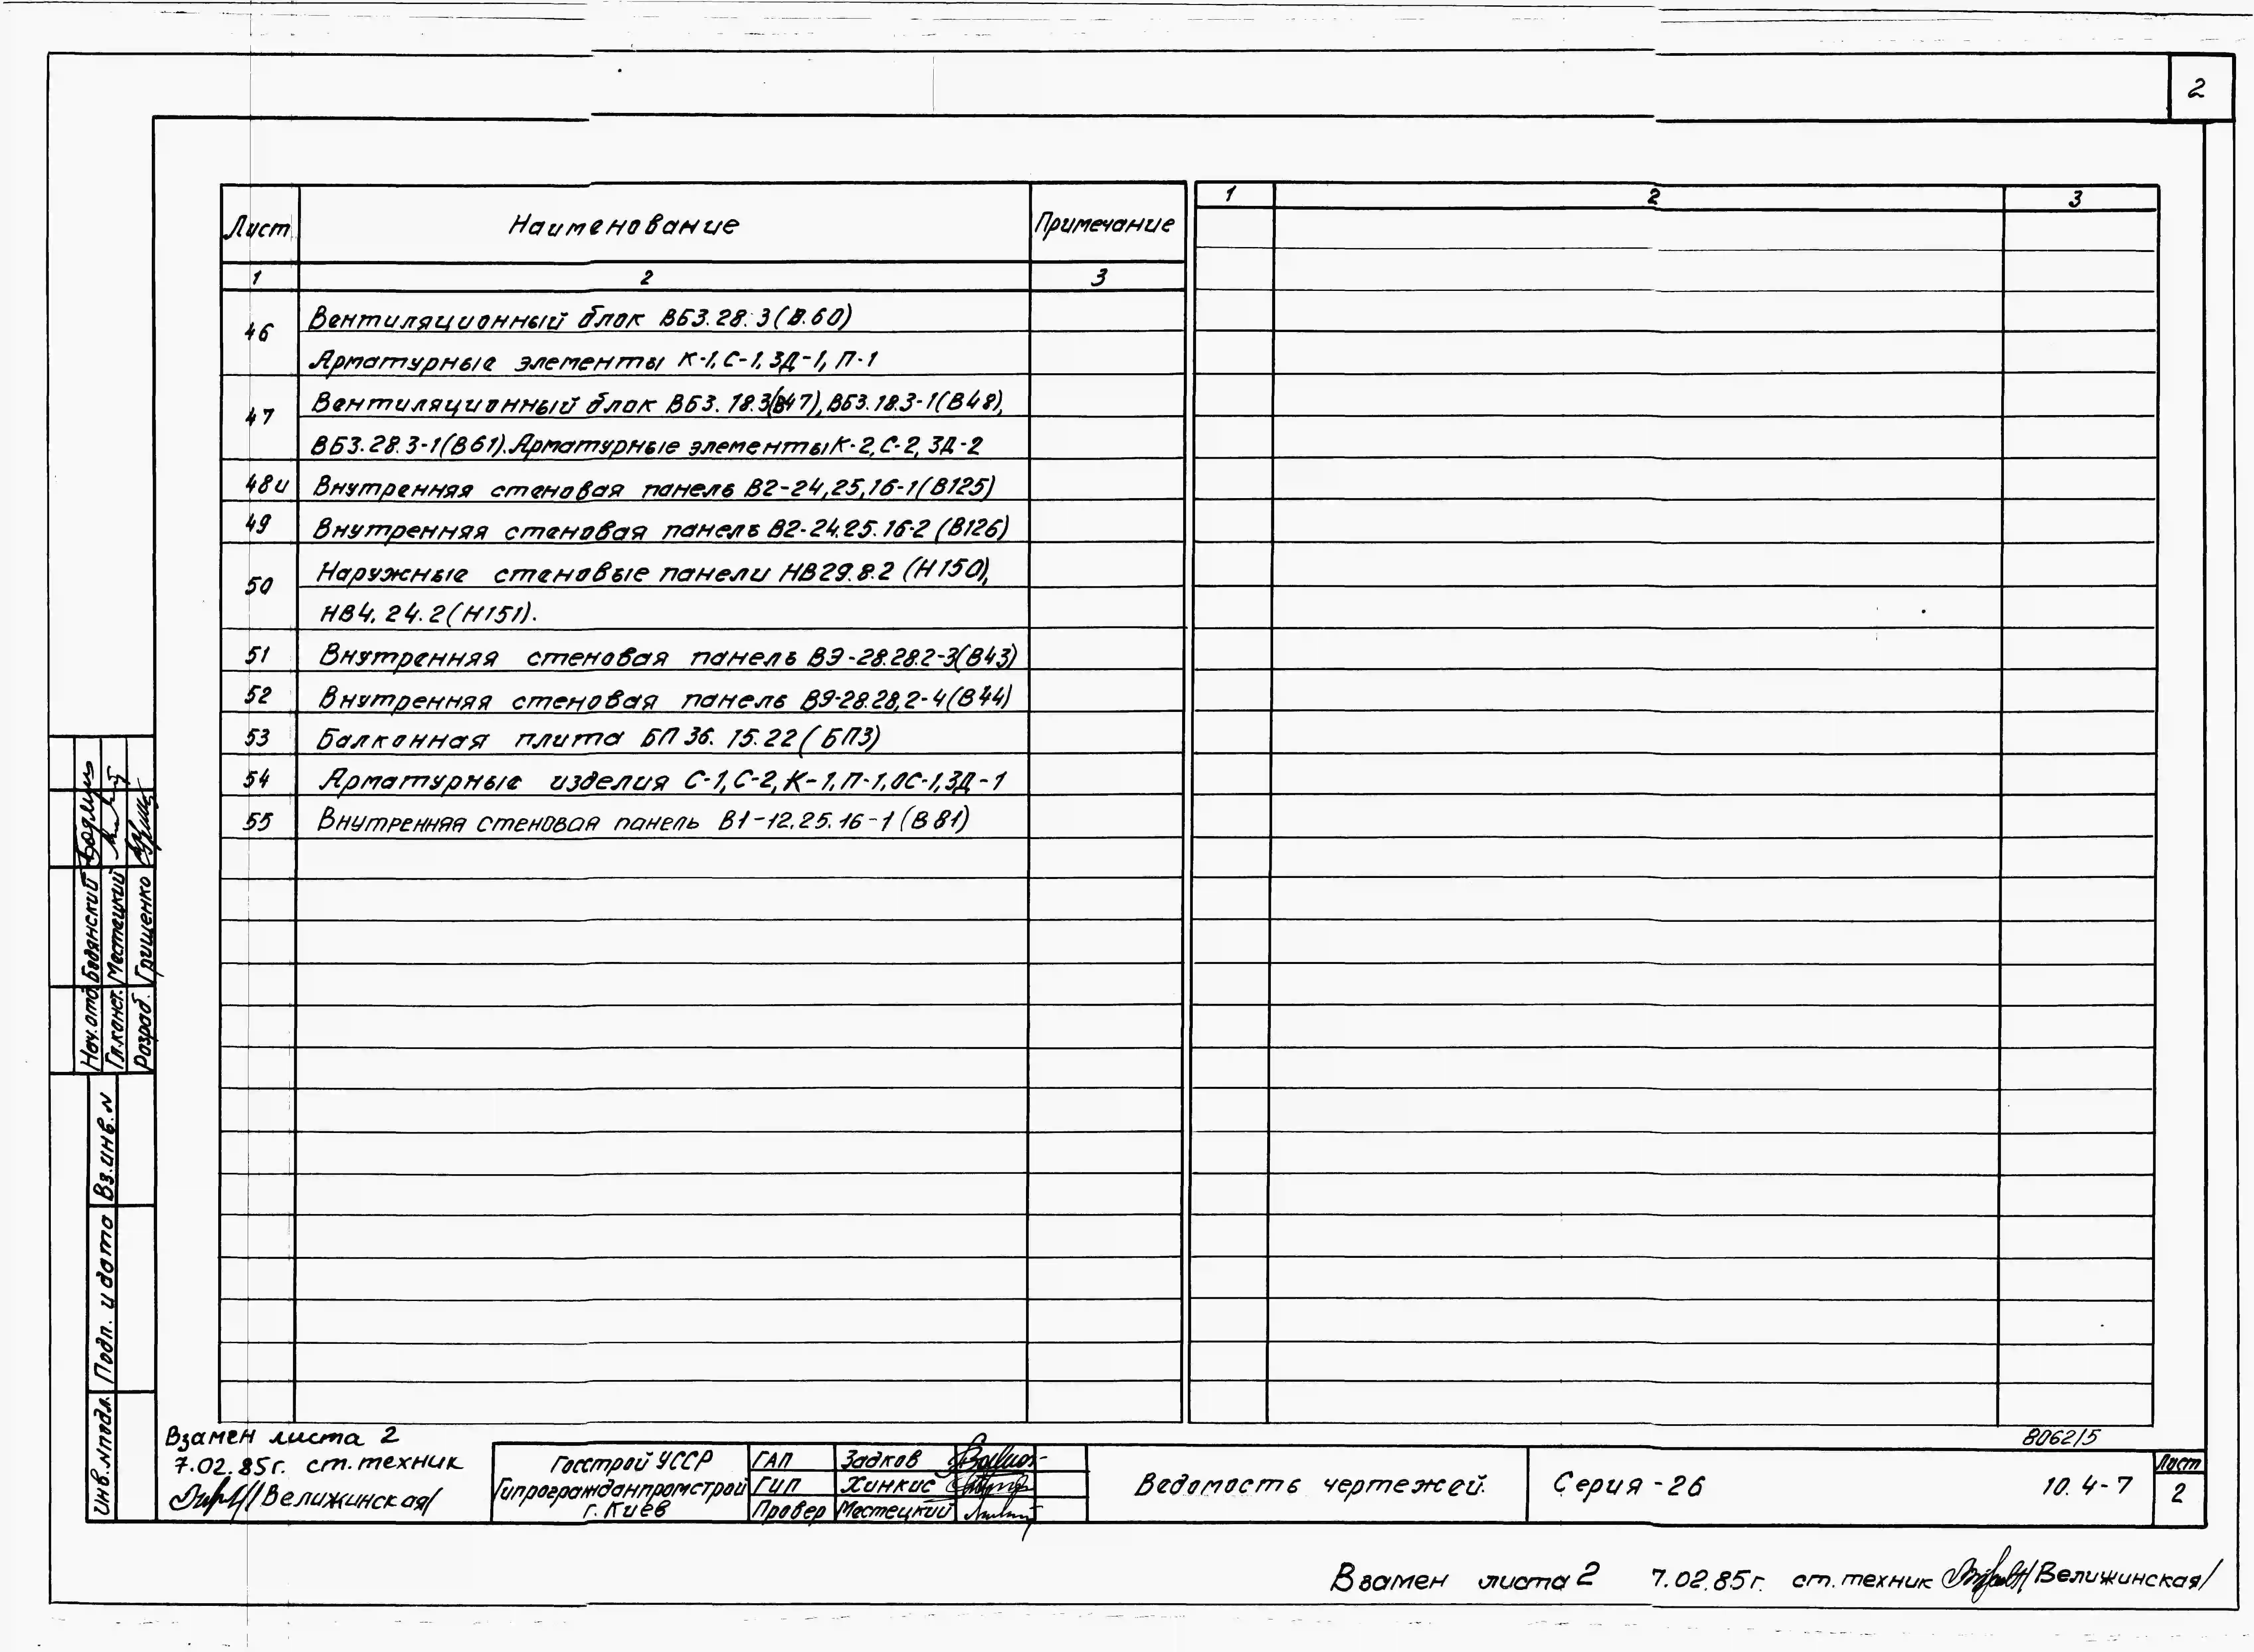 2
Лист Наименование Примечание
1 2 3
1 2 3
46 Вентиляционный блок ВБ3.28.3(В.60)
Арматурные элементы К-1, С-1, ЗД-1, П-1
47 Вентиляционный блок ВБ3.18.3(В47), ВБ3.18.3-1(В48),
ВБ3.28.3-1(В61). Арматурные элементы К-2, С-2, ЗД-2
48и Внутренняя стеновая панель В2-24,25,16-1(В125)
49 Внутренняя стеновая панель В2-24.25.16-2 (В126)
50 Наружные стеновые панели НВ29.8.2 (Н150),
НВ4.24.2(Н151).
51 Внутренняя стеновая панель В9-28.28.2-3(В43)
52 Внутренняя стеновая панель В9-28.28,2-4(В44)
53 Балконная плита БП 36.15.22 (БП3)
54 Арматурные изделия С-1, С-2, К-1, П-1, ОС-1, ЗД-1
55 Внутренняя стеновая панель В1-12.25.16-1 (В81)
Нач.отд. Бедянский
Гл.конст. Местецкий
Разраб. Грищенко
Вз.инв.N
Подп. и дата
Инв.Nподл.
Взамен листа 2
7.02.85г. ст.техник
/Велижинская/
Госстрой УССР
Гипрогражданпромстрой
г. Киев
ГАП Задков
ГИП Хинкис
Провер Местецкий
Ведомость чертежей.
Серия-26
8062/5
10.4-7
Лист
2
Взамен листа 2 7.02.85г. ст.техник /Велижинская/